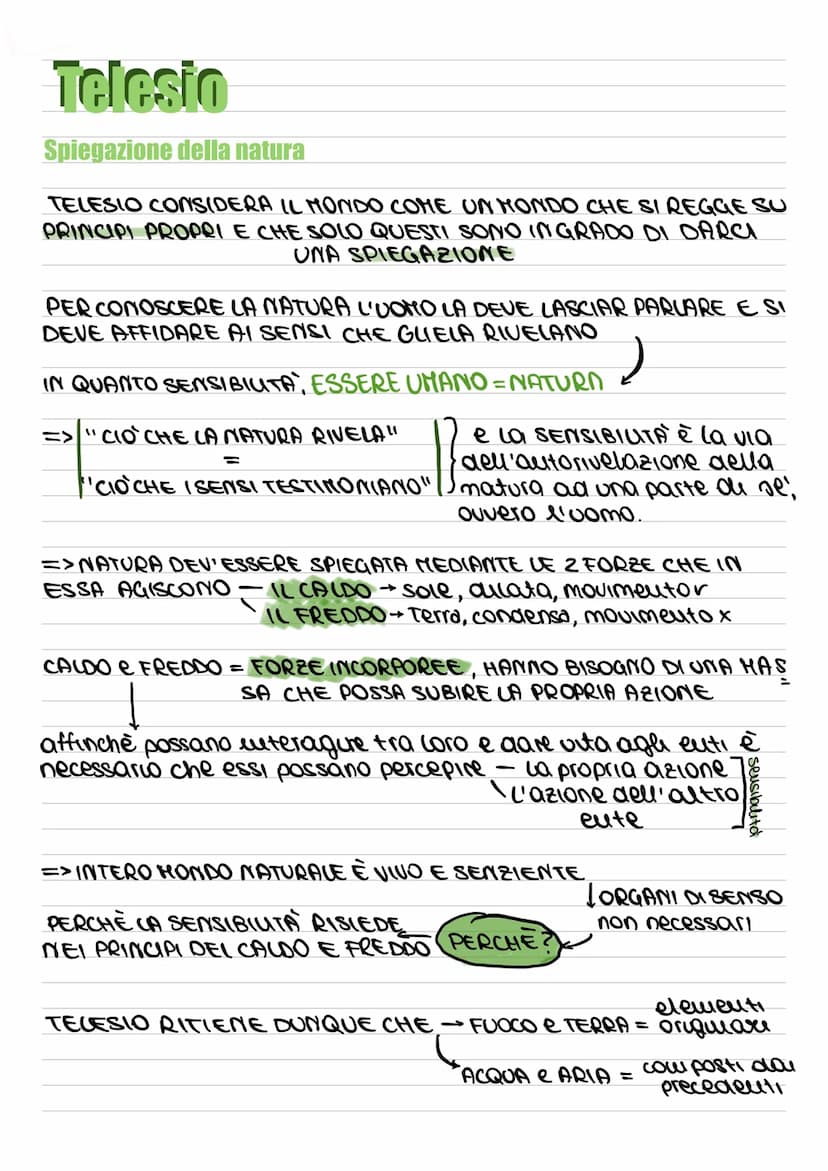 Telesio
Spiegazione della natura
TELESIO CONSIDERA IL MONDO COME UN MONDO CHE SI REGGE SU
PRINCIPI PROPRI E CHE SOLO QUESTI SONO IN GRADO DI DARCI
UNA SPIEGAZIONE
PER CONOSCERE LA NATURA L'UOMO LA DEVE LASCIAR PARLARE E SI
DEVE AFFIDARE AI SENSI CHE GLIELA RIVELANO
IN QUANTO SENSIBILITÀ, ESSERE UMANO = NATURA
=> "CIÒ CHE LA NATURA RIVELA"
=
"CIÒ CHE I SENSI TESTIMONIANO"
e la SENSIBILITÀ È la via
dell'autorivelazione della
natura ad una parte di sé,
ovvero l'uomo.
=> NATURA DEV'ESSERE SPIEGATA MEDIANTE LE 2 FORZE CHE IN
ESSA AGISCONO — IL CALDO → Sole, dilata, movimento v
IL FREDDO → Terra, condensa, movimento x
CALDO e FREDDO = FORZE INCORPOREE, HANNO BISOGNO DI UNA MAS
SA CHE POSSA SUBIRE LA PROPRIA AZIONE
affinchè possano interagire tra loro e dare vita agli enti è
necessario che essi possano percepire — la propria azione
l'azione dell'altro
ente
sensibilità
=> INTERO MONDO NATURALE È VIVO E SENZIENTE
ORGANI DI SENSO
non necessari
PERCHÈ?
PERCHÈ LA SENSIBILITÀ RISIEDE
NEI PRINCIPI DEL CALDO E FREDDO
TELESIO RITIENE DUNQUE CHE → FUOCO e TERRA = elementi
originari
ACQUA e ARIA = composti dai
precedenti